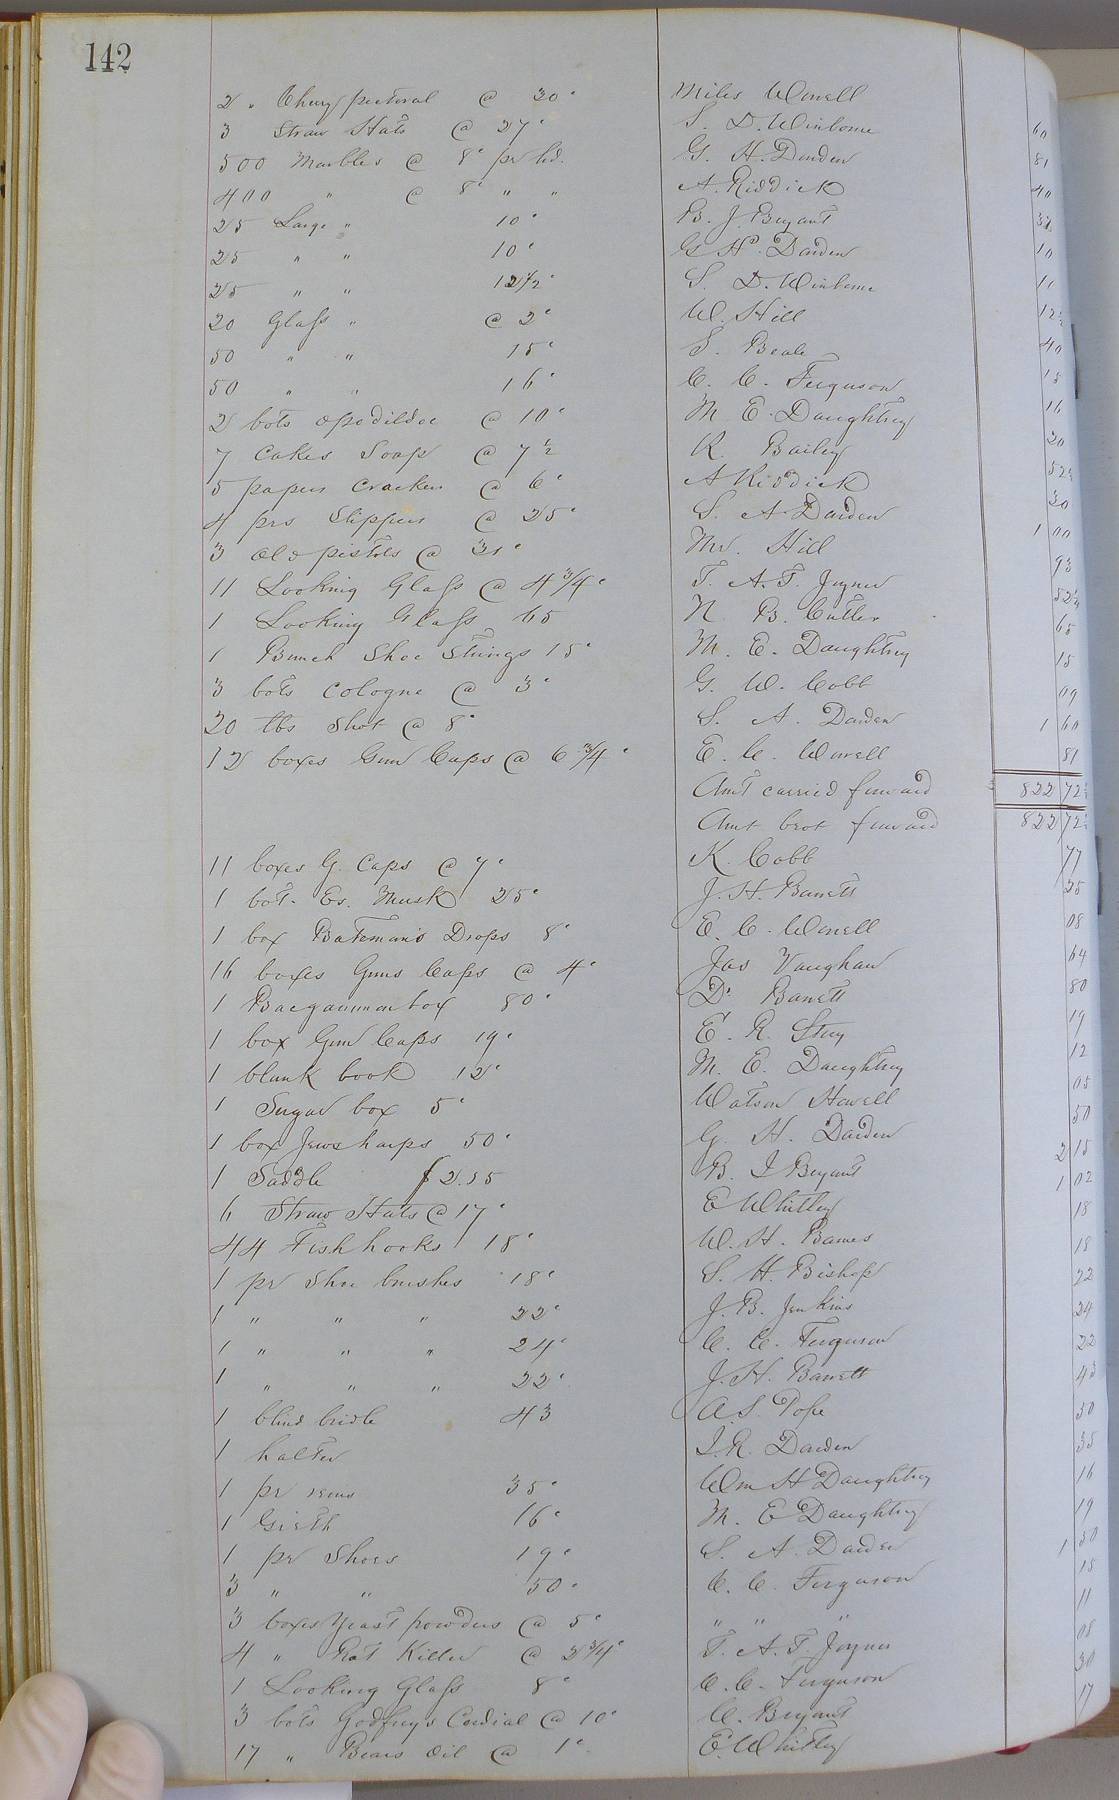 142
2 " Cherry pectoral @ 30c Miles Howell 60
3 Straw Hats @ 27c S. D. Winborne 81
500 Marbles @ 8c pr hd. G. H. Darden 40
400 " @ 8c " " A. Riddick 32
25 Large " 10c B. J. Bryant 10
25 " " 10c G H. Darden 10
25 " " 12½c S. D. Winborne 12½
20 Glass " @ 2c W. Hill 40
50 " " 15c S. Beale 15
50 " " 16c C. C. Ferguson 16
2 bots opodildoc @ 10c M E. Daughtrey 20
7 Cakes Soap @ 7½ R. Bailey 52½
5 papers Crackers @ 6c A Riddick 30
4 prs Slippers @ 25c S. A Darden 1 00
3 old pistols @ 31c Mr. Hill 93
11 Looking Glass @ 4¾c T. A. T. Joyner 52¼
1 Looking Glass 65 N B. Cutler 65
1 Bunch Shoe Strings 15c M. E. Daughtrey 15
3 bots Cologne @ 3c G. W. Cobb 09
20 lbs Shot @ 8c S. A. Darden 1 60
12 boxes Gun Caps @ 6¾c E. C. Howell 81
Amt carried forward 822 72½
Amt brot forward 822 72½
11 boxes G. Caps @ 7c K. Cobb 77
1 bot. Es. Musk 25c J. H. Barrett 25
1 box Bateman's Drops 8c E. C. Howell 08
16 boxes Guns Caps @ 4c Jas Vaughan 64
1 Bacgammon box 80c Dr Barrett 80
1 box Gun Caps 19c E. R. 19
1 blank book 12c M. E. Daughtrey 12
1 Sugar box 5c Watson Howell 05
1 box Jewsharps 50c G. H. Darden 50
1 Saddle $2.15 B. J Bryant 2 15
6 Straw Hats @ 17c E Whitley 1 02
44 Fish hooks 18c W. H. Barnes 18
1 pr Shoe brushes 18c S. H. Bishop 18
1 " " " 22c J. B. Jenkins 22
1 " " " 24c C. C. Ferguson 24
1 " " " 22c J. H. Barrett 22
1 blind bridle 43 A. S. Pope 43
1 halter J. R. Darden 30
1 pr reins 35c Wm H Daughtrey 35
1 Girth 16c M. E Daughtrey 16
1 pr Shoes 19c S. A. Darden 19
3 " " 50c C. C. Ferguson 1 50
3 boxes Yeast powders @ 5c " " " 15
4 " Rat Killer @ 2¾c T. A. T. Joyner 11
1 Looking Glass 8c C. C. Ferguson 08
3 bots Godfrey's Cordial @ 10c C. Bryant 30
17 " Bears Oil @ 1c E. Whitley 17